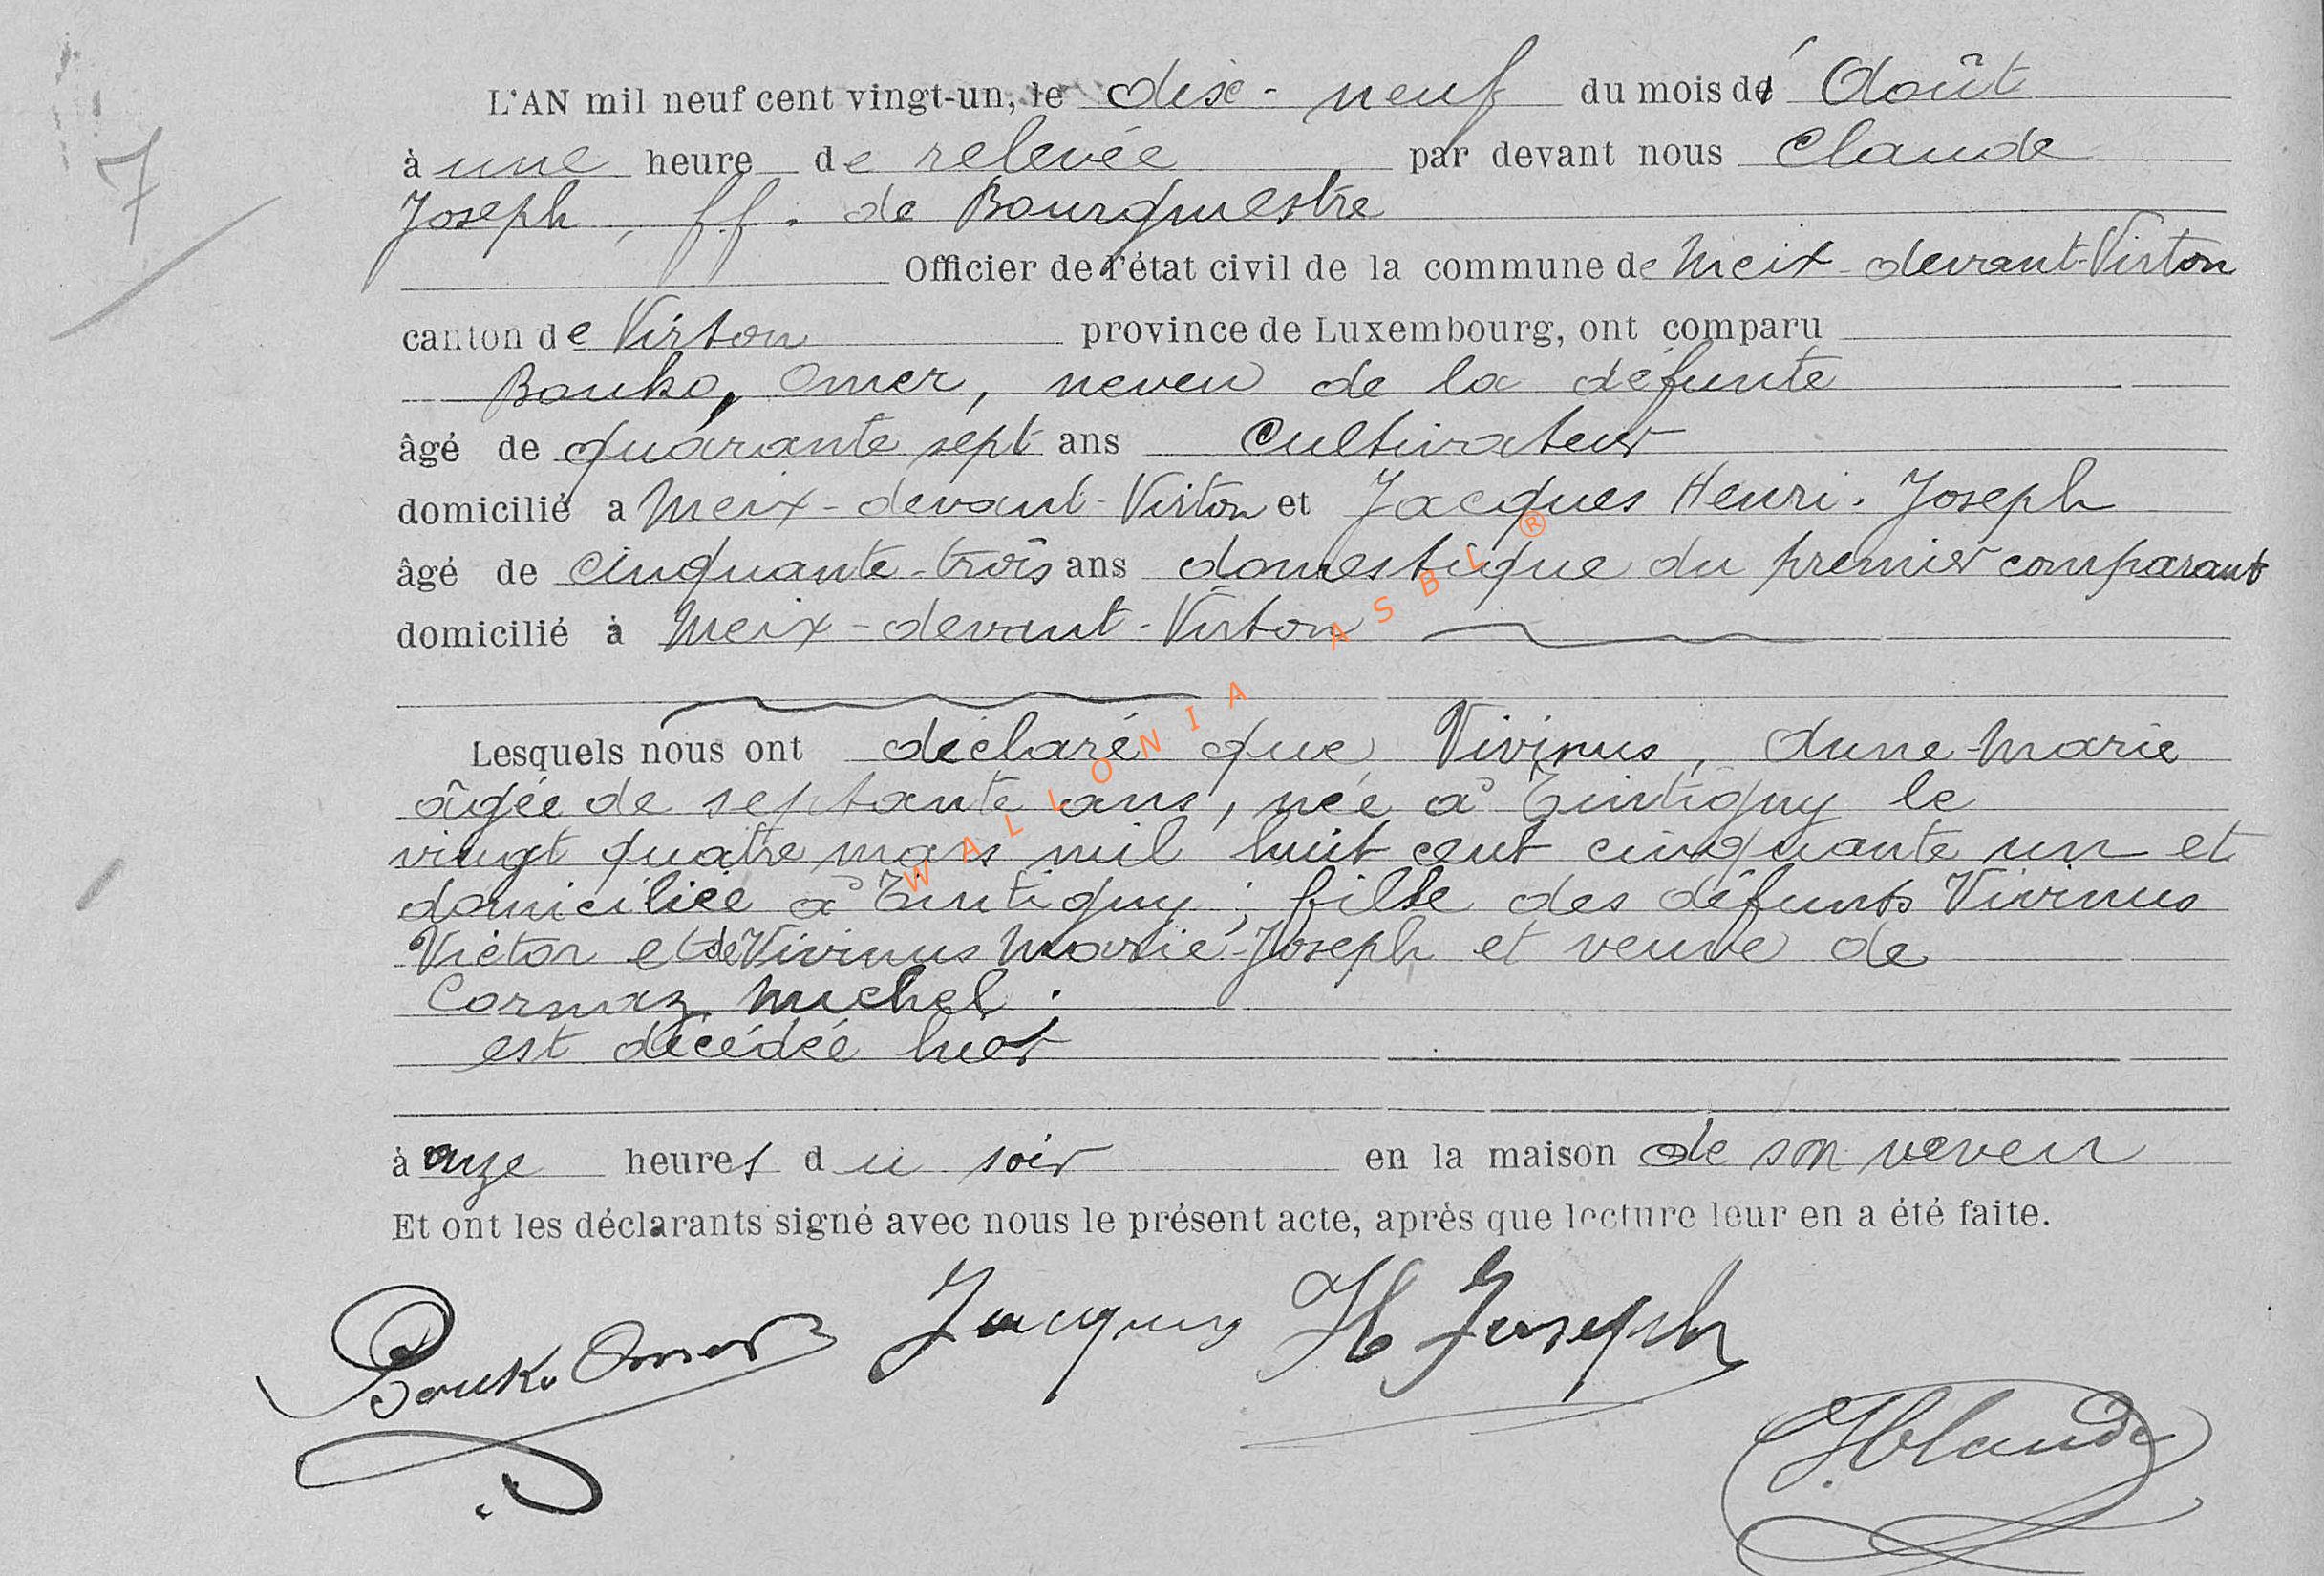 L'AN mil neuf cent vingt-un, le dix-neuf du mois d' Août
7
à une heure de relevée par devant nous Claude
Joseph, ff. de Bourgmestre
Officier de l'état civil de la commune de Meix-devant-Virton
canton de Virton province de Luxembourg, ont comparu
Bouko, Omer, neveu de la défunte
âgé de quarante sept ans Cultivateur
domicilié a Meix-devant-Virton et Jacques Henri-Joseph
âgé de cinquante-trois ans domestique du premier comparant
domicilié à Meix-devant-Virton
Lesquels nous ont déclaré que Vivinus, Anne-Marie
âgée de septante ans, née à Tintigny le
vingt quatre mars mil huit cent cinquante un et
domiciliée à Tintigny; fille des défunts Vivinus
Victor et de Vivinus Marie-Joseph et veuve de
Cornaz Michel;
est décédée hier
à onze heures du soir en la maison de son neveu
Et ont les déclarants signé avec nous le présent acte, après que lecture leur en a été faite.
Bouko Omer Jacques H Joseph
J Claude
WALLONIA ASBL ®